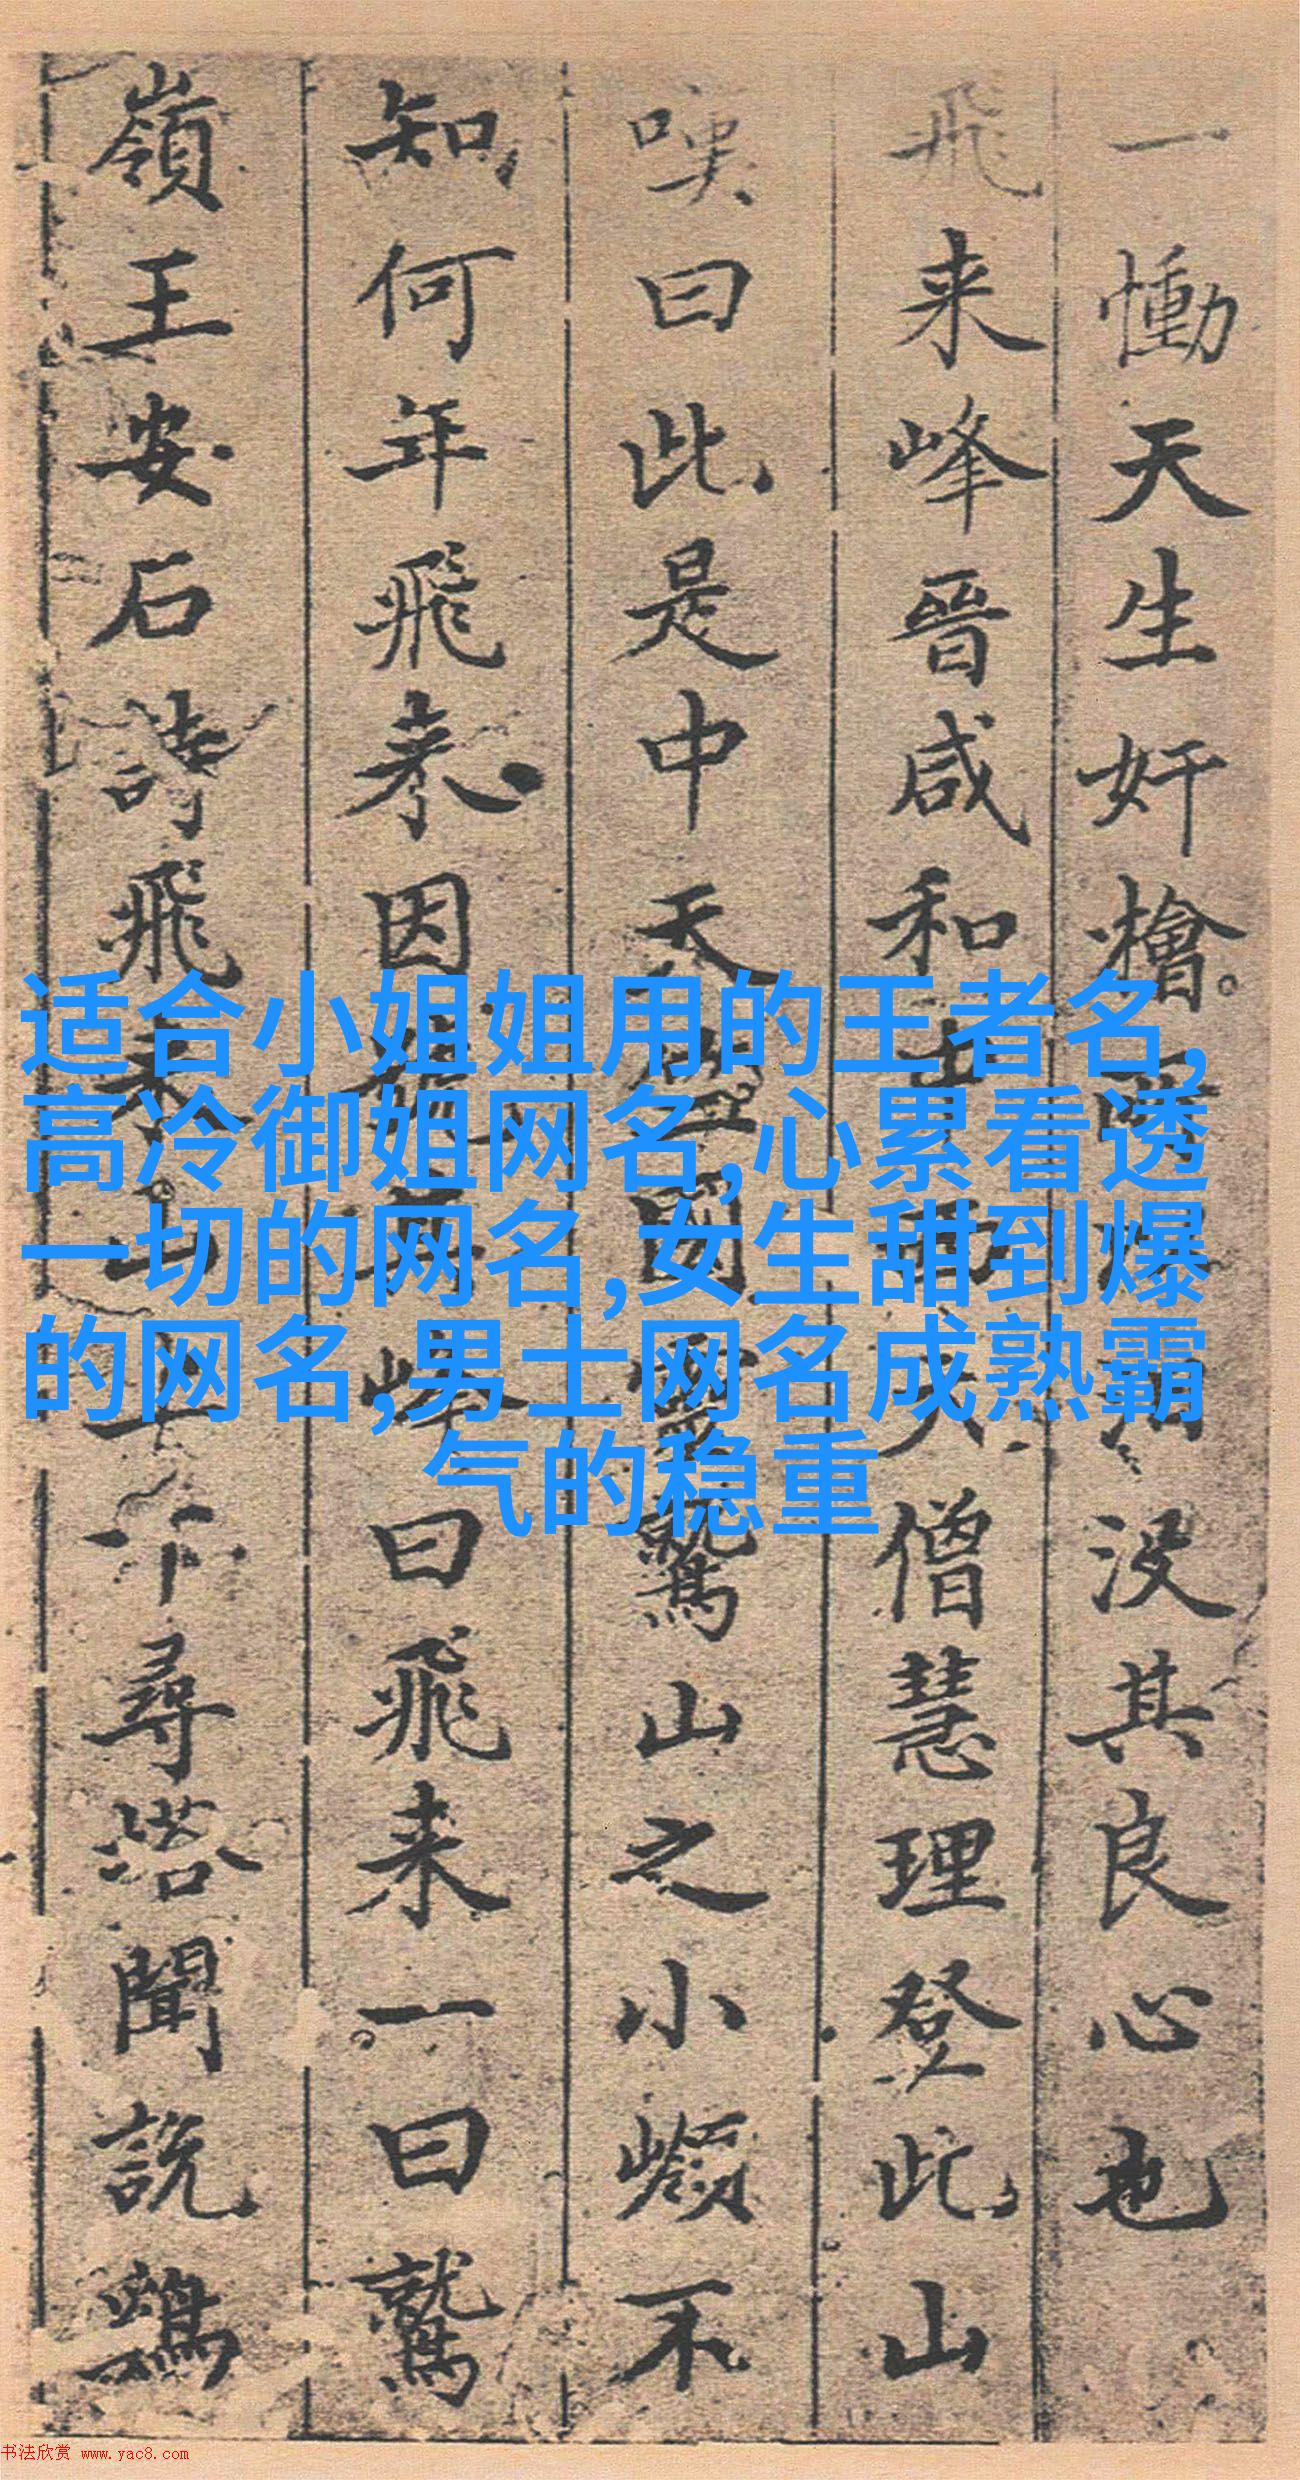 一慟天生奸檜 沒其良心也
飛来峰晉咸和 僧慧理登此山
嘆曰此是中天竺國靈鷲山之小嶺不
知何年飛来因號其峰曰飛来一曰鷲
嶺王安石詩飛来山上千尋塔聞說鷄
适合小姐姐用的王者名,
高冷御姐网名,心累看透
一切的网名,女生甜到爆
的网名,男士网名成熟霸
气的稳重
书法欣赏 www.yac8.com